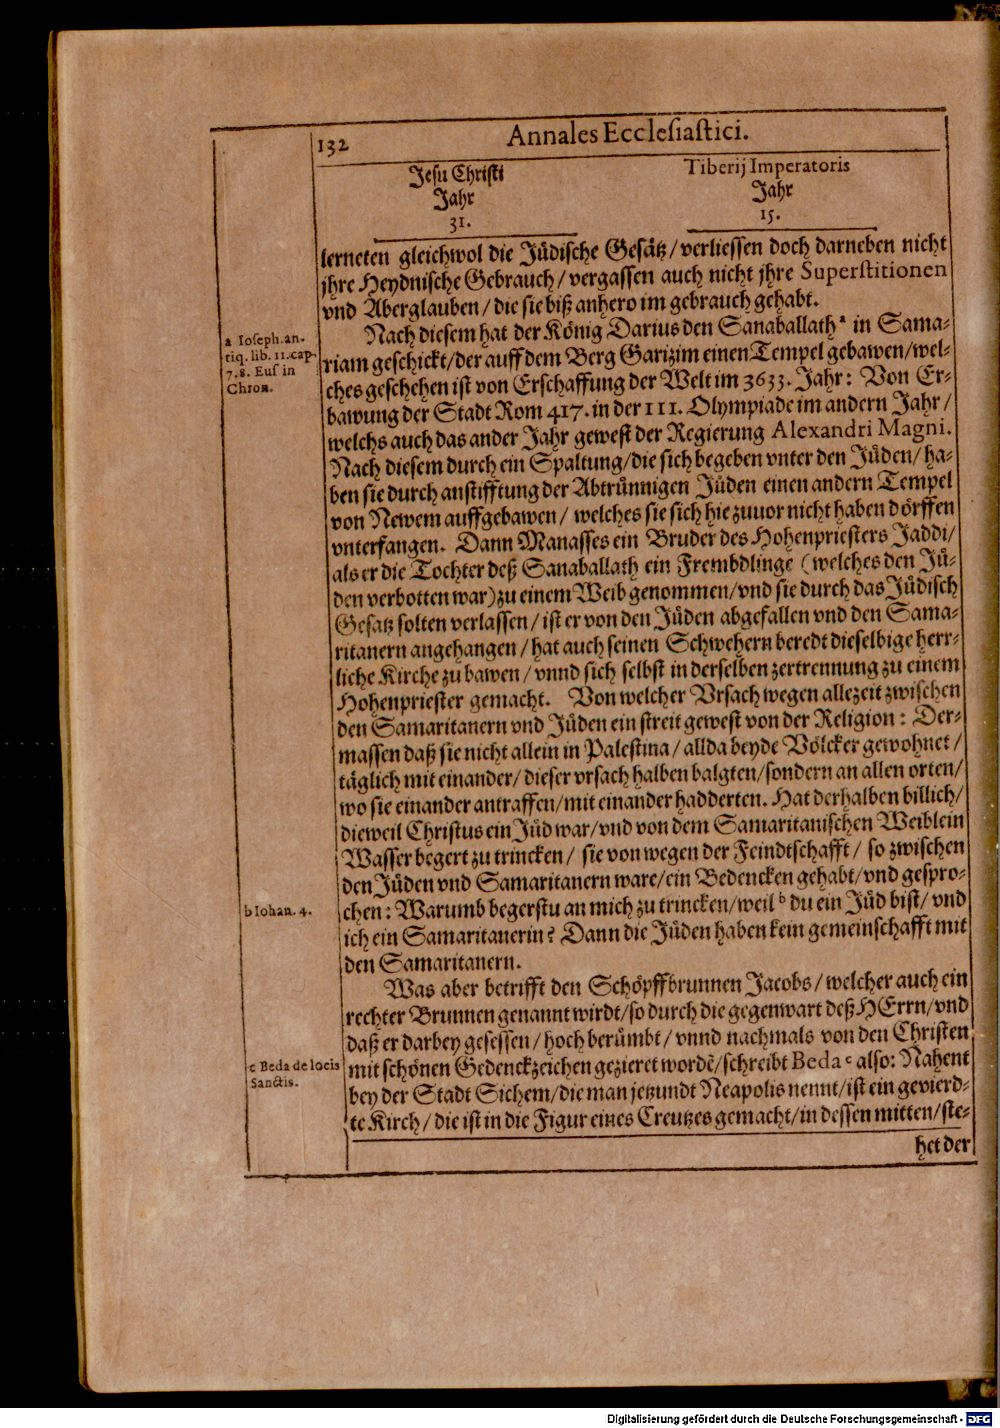 132
Annales Ecclesiastici.
Jesu Christi
Jahr
31.
Tiberij Imperatoris
Jahr
15.
lerneten gleichwol die Jüdische Gesätz/verliessen doch darneben nicht
jhre Heydnische Gebrauch/vergassen auch nicht jhre Superstitionen
vnd Aberglauben/die sie biß anhero im gebrauch gehabt.
Nach diesem hat der König Darius den Sanaballath a in Sama-
riam geschickt/der auff dem Berg Garizim einen Tempel gebawen/wel-
ches geschehen ist von Erschaffung der Welt im 3633. Jahr: Von Er-
bawung der Stadt Rom 417. in der 111. Olympiade im andern Jahr/
welchs auch das ander Jahr gewest der Regierung Alexandri Magni.
Nach diesem durch ein Spaltung/die sich begeben vnter den Jüden/ha-
ben sie durch anstifftung der Abtrünnigen Jüden einen andern Tempel
von Newem auffgebawen/welches sie sich hiezuuor nicht haben dörffen
vnterfangen. Dann Manasses ein Bruder des Hohenpriesters Jaddi/
als er die Tochter deß Sanaballath ein Frembdlinge (welches den Jü-
den verbotten war) zu einem Weib genommen/vnd sie durch das Jüdisch
Gesatz solten verlassen/ist er von den Jüden abgefallen vnd den Sama-
ritanern angehangen/hat auch seinen Schwehern beredt dieselbige herr-
liche Kirche zu bawen/vnnd sich selbst in derselben zertrennung zu einem
Hohenpriester gemacht. Von welcher Vrsach wegen allezeit zwischen
den Samaritanern vnd Jüden ein streit gewest von der Religion: Der-
massen daß sie nicht allein in Palestina/allda beyde Völcker gewohnet/
täglich mit einander/dieser vrsach halben balgten/sondern an allen orten/
wo sie einander antraffen/mit einander hadderten. Hat derhalben billich/
dieweil Christus ein Jüd war/vnd von dem Samaritanischen Weiblein
Wasser begert zu trincken/sie von wegen der Feindtschafft/so zwischen
den Jüden vnd Samaritanern ware/ein Bedencken gehabt/vnd gespro-
chen: Warumb begerstu an mich zu trincken/weil b du ein Jüd bist/vnd
ich ein Samaritanerin? Dann die Jüden haben kein gemeinschafft mit
den Samaritanern.
Was aber betrifft den Schöpffbrunnen Jacobs/welcher auch ein
rechter Brunnen genannt wirdt/so durch die gegenwart deß HErrn/vnd
daß er darbey gesessen/hoch berümbt/vnnd nachmals von den Christen
mit schönen Gedenckzeichen gezieret wordẽ/schreibt Beda c also: Nahent
bey der Stadt Sichem/die man jetzundt Neapolis nennt/ist ein gevierd-
te Kirch/die ist in die Figur eines Creutzes gemacht/in dessen mitten/ste-
het der
a Ioseph. an-
tiq. lib. 11. cap.
7.8. Eus in
Chron.
b Iohan. 4.
c Beda de locis
Sanctis.
Digitalisierung gefördert durch die Deutsche Forschungsgemeinschaft - DFG